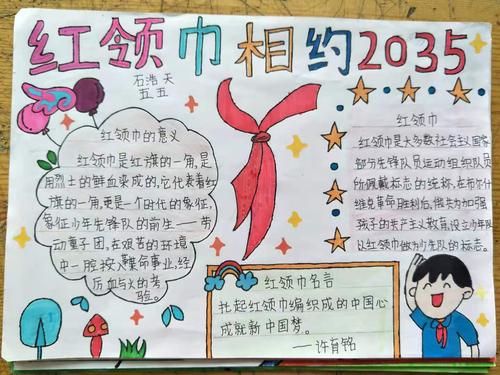 红领巾相约2035
石浩天
五五
红领巾的意义
红领巾是红旗的一角,是
用烈士的鲜血染成的,它代表着红
旗的一角,更是一个时代的象征,
象征少年先锋队的前生——劳
动童子团,在艰苦的环境
中一腔按入革命事业,经
历血与火的考
验。
红领巾
红领巾是大多数社会主义国家
部分先锋队员运动组织队员
所佩戴标志的统称,在布尔什
维克革命胜利后,做为加强
孩子的共产主义教育,设立少年队
以红领巾做为少先队的标志。
红领巾名言
扎起红领巾编织成的中国心
成就新中国梦。
——许有铭